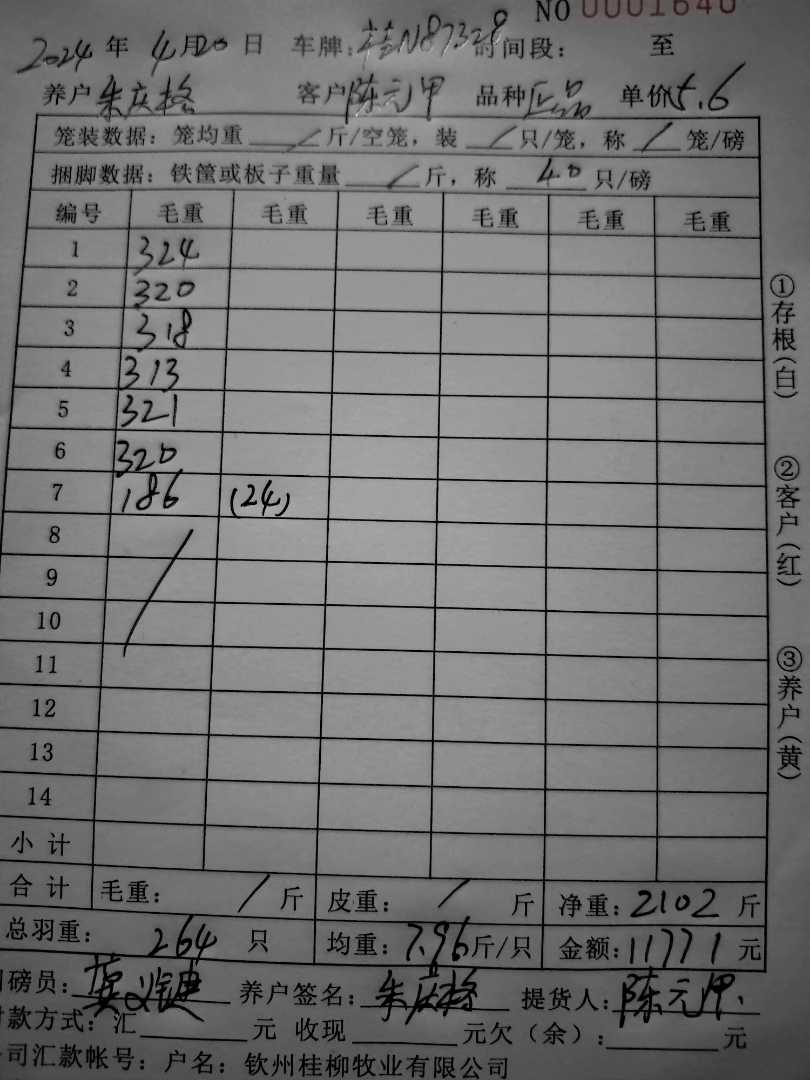 NO 0001640
2024年 4月20日 车牌:桂N87328 时间段: 至
养户 朱庆格 客户 陈元甲 品种 匠品 单价5.6
笼装数据: 笼均重 / 斤/空笼, 装 / 只/笼, 称 / 笼/磅
捆脚数据: 铁筐或板子重量 / 斤, 称 40 只/磅
编号 毛重 毛重 毛重 毛重 毛重 毛重
1 324
2 320
3 318
4 313
5 321
6 320
7 186 (24)
8
9
10
11
12
13
14
小计
合计 毛重: / 斤 皮重: / 斤 净重: 2102 斤
总羽重: 264 只 均重: 7.96 斤/只 金额: 11771 元
磅员: 养户签名: 朱庆格 提货人: 陈元甲
付款方式: 汇 元 收现 元欠(余): 元
公司汇款帐号: 户名: 钦州桂柳牧业有限公司
①存根(白)
②客户(红)
③养户(黄)